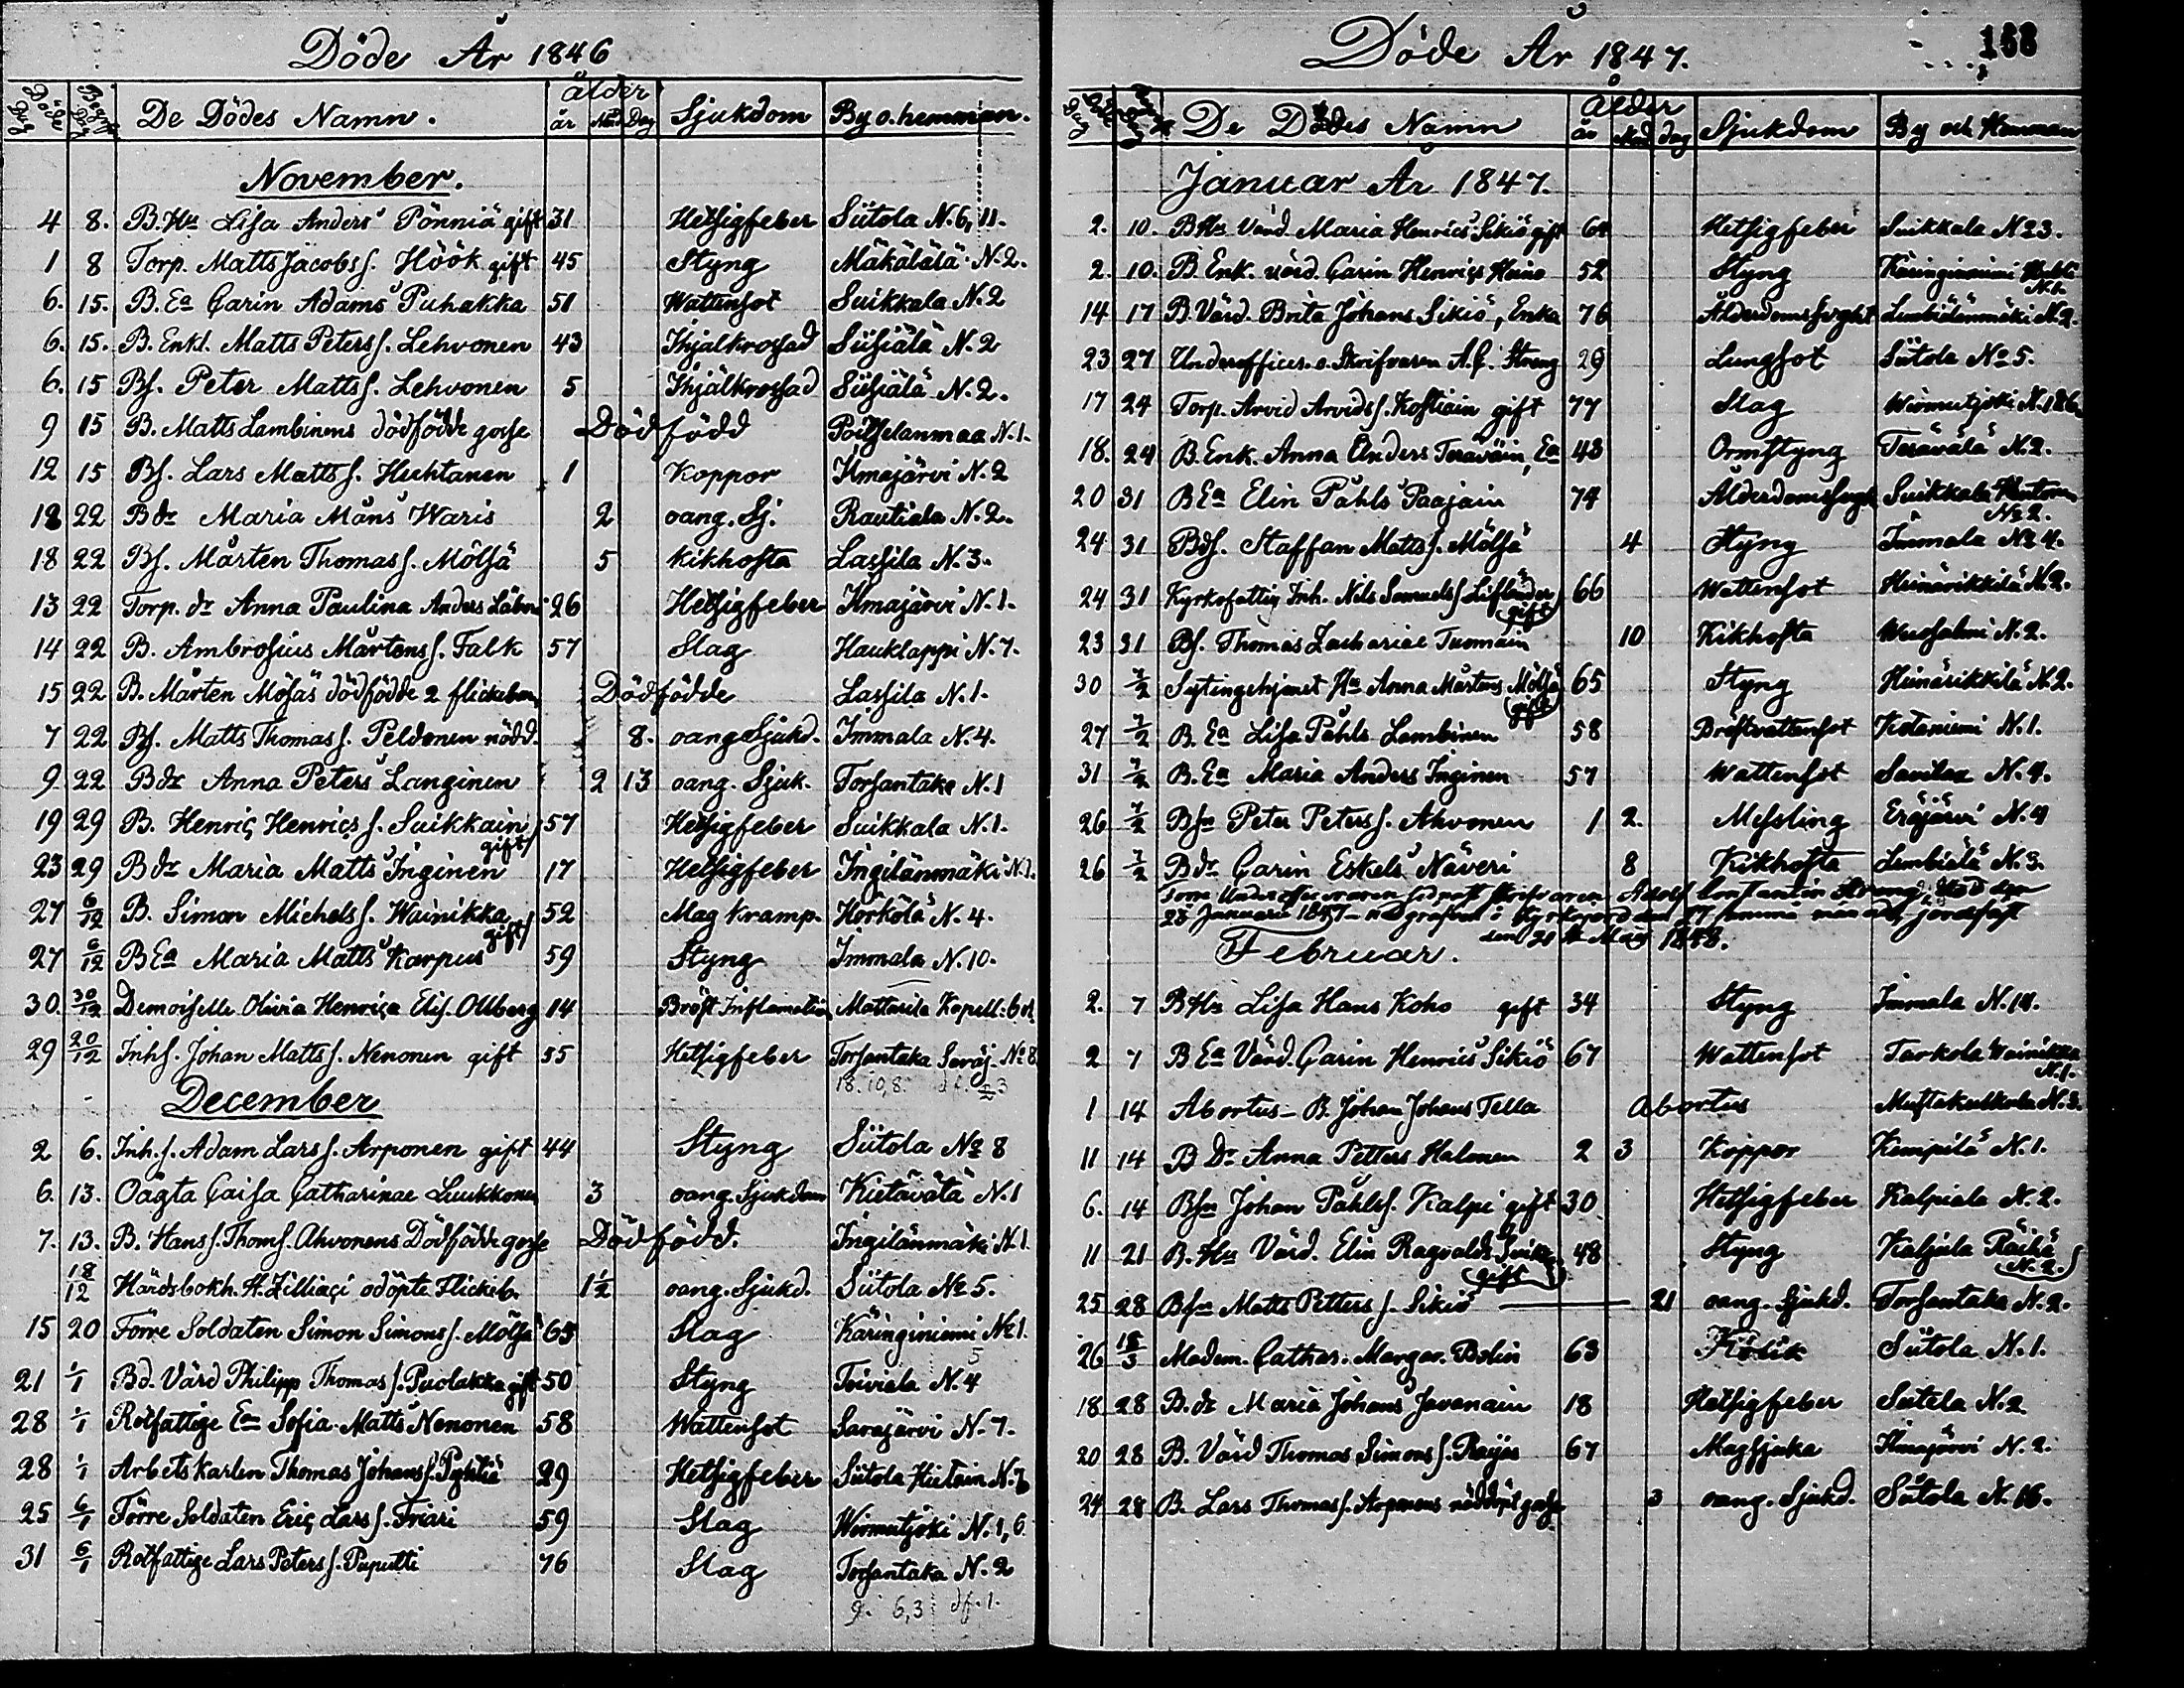 Döde År 1846
Döde Dag Begr. Dag De Dödes Namn. ålder år Mån Dag Sjukdom By o. hemman.
November.
4 8. B.Hu Lisa Anders Pönniä gift 31 Hetsigfeber Siitola N. 6, 11.
1 8 Torp. Matts Jacobs s. Höök gift 45 Styng Mäkälälä N. 2.
6. 15. B. Ea Carin Adams Puhakka 51 Wattensot Suikkala N. 2
6. 15. B. Enkl. Matts Peters s. Lehvonen 43 Ihjälkrossad Siisiälä N. 2
6. 15 Bs. Peter Matts s. Lehvonen 5 Ihjälkrossad Siisiälä N. 2.
9 15 B. Matts Lambinens dödfödde gosse Död född Poitselanmaa N. 1.
12 15 Bs. Lars Matts s. Huhtanen 1 Koppor Ilmajärvi N. 2
18 22 Bdr Maria Måns Waris 2 oang. Sj. Rautiala N. 2.
18 22 Bs. Mårten Thomas s. Mölsä 5 Kikhosta Lassila N. 3.
13 22 Torp. dr Anna Paulina Anders 26 Hetsigfeber Ilmajärvi N. 1.
14 22 B. Ambrosius Mårtens s. Falk 57 Slag Hauklappi N. 7.
15 22 B. Mårten Mösäs dödfödde 2 flickebarn Dödfödde Lassila N. 1.
7 22 Bs. Matts Thomas s. Peldonen nödd. 8. oang. Sjukd. Immala N. 4.
9 22 Bdr Anna Peters Langinen 2 13 oang. Sjuk. Torsantaka N. 1
19 29 B. Henric Henrics s. Suikkain gift 57 Hetsigfeber Suikkala N. 1.
23 29 Bdr Maria Matts Inginen 17 Hetsigfeber Ingilänmäki N. 1.
27 6/12 B. Simon Michels s. Wainikka gift 52 Mag kramp. Korkölä N. 4.
27 6/12 B Ea Maria Matts Karpus 59 Styng Immala N. 10.
30. 30/12 Demoiselle Olivia Henrica Elis. Ollberg 14 Bröst Inflamation Mattasila Kapell. bol
29 20/12 Inhs. Johan Matts s. Nenonen gift 55 Hetsigfeber Torsantaka Saräj. No 8
18. 10, 8.
December
2 6. Inh. s. Adam Lars s. Arponen gift 44 Styng Siitola No 8
6. 13. Oägta Caisa Catharinae Luukkonen 3 oang. Sjukdom Kietävälä N. 1
7. 13. B. Hans s. Thoms. Ahvonens Dödfödde gosse Död född. Ingilänmäki N. 1.
18/12 Härdsbokh. H. Zilliaci odöpte Flickeb. 1½ oang. Sjukd. Siitola No 5.
15 20 Förre Soldaten Simon Simons s. Mölsä 65 Slag Käringiniemi No 1.
21 1/1 Bd. Värd Philipp Thomas s. Puolakka gift 50 Styng Toiviala N. 4
28 1/1 Rotfattige Ea Sofia Matts Nenonen 58 Wattensot Sarajärvi N. 7.
28 1/1 Arbetskarlen Thomas Johans s. 29 Hetsigfeber Siitola Hietain N. 7
25 6/1 Förre Soldaten Eric Lars s. Friari 59 Slag Wirmutjoki N. 1, 6.
31 6/1 Rotfattige Lars Peters s. Puputti 76 Slag Torsantaka N. 2
9. 6, 3 df. 1.
Döde År 1847.
158
Döde Dag Begr. Dag De Dödes Namn Ålder år Mnd dag Sjukdom By och Hemman
Januar År 1847.
2. 10. BHu Värd. Maria Henrics Sikiö gift 64 Hetsigfeber Suikkala N 23.
2. 10. B. Enk. värd. Carin Henrics Heino 52 Styng Käringiniemi N. 1.
14 17 B. Värd. Brita Johans Sikiö, Enka 76 Ålderdomssvght Lembiälänmäki N. 2.
23 27 Underofficer. o. Skrifvaren A. C. Streng 29 Lungsot Siitola No 5.
17 24 Torp. Arvid Arvids s. Kostiain gift 77 Slag Wirmutjoki N. 186.
18. 24 B. Enk. Anna Anders Teräväin, Ea 43 Ormstyng Terävälä N. 2.
20 31 B Ea Elin Påhls Paajain 74 Ålderdomssvght Suikkala No 2.
24 31 Bds. Staffan Matts s. Mölsä 4 Styng Immala No 4.
24 31 Kyrkofattig Inh. Nils Samuels s. Lifländer gift 66 Wattensot Heinärikkilä N. 2.
23 31 Bs. Thomas Zachariae Tuomain 10 Kikhosta Wuosalmi N. 2.
30 7/2 Sytingshjonet Hu Anna Mårtens Mölsä gift 65 Styng Heinärikkilä N. 2.
27 7/2 B. Ea Lisa Påhls Lambinen 58 Bröstvattensot Kotaniemi N. 1.
31 7/2 B. Ea Maria Anders Inginen 57 Wattensot Savilax N. 4.
26 7/2 Bsn Peter Peters s. Ahvonen 1 2. Messling Eräjärvi N. 4
26 7/2 Bdr Carin Eskels Näveri 8 Kikhosta Lembiälä N. 3.
Förre Underofficeraren Adolf Constantin Streng, död den
23 Januari 1847 jordfäst
den 21 Maj 1848.
Februar.
2. 7 BHu Lisa Hans Koho gift 34 Styng Immala N. 14.
2 7 B Ea Värd. Carin Henrics Sikiö 67 Wattensot Tarkola Wainikka N. 1.
1 14 Abortus - B. Johan Johans Tella Abortus Mustakulkala N. 3.
11 14 B Dr Anna Petters Halonen 2 3 Koppor Kempilä N. 1.
6. 14 Bsn Johan Påhls s. Kalpi gift 30 Hetsigfeber Kalpiala N. 2.
11 21 B. Hu Värd. Elin Ragvalds gift 48 Styng Kaljala Räihä N. 2.
25 28 Bsn Matts Petters s. Sikiö 21 oang. Sjukd. Torsantaka N. 2.
26 15/3 Madam. Cathar. Margar. Bolin 63 Kolik Siitola N. 1.
18 28 B. dr Maria Johans Javanain 18 Hetsigfeber Siitola N. 2
20 28 B. Värd Thomas Simons s. Raijas 67 Magsjuka Ilmajärvi N. 2.
24 28 B. Lars Thomas s. Arponens nöddöpt gosse 3 oang. Sjukd. Siitola N. 16.